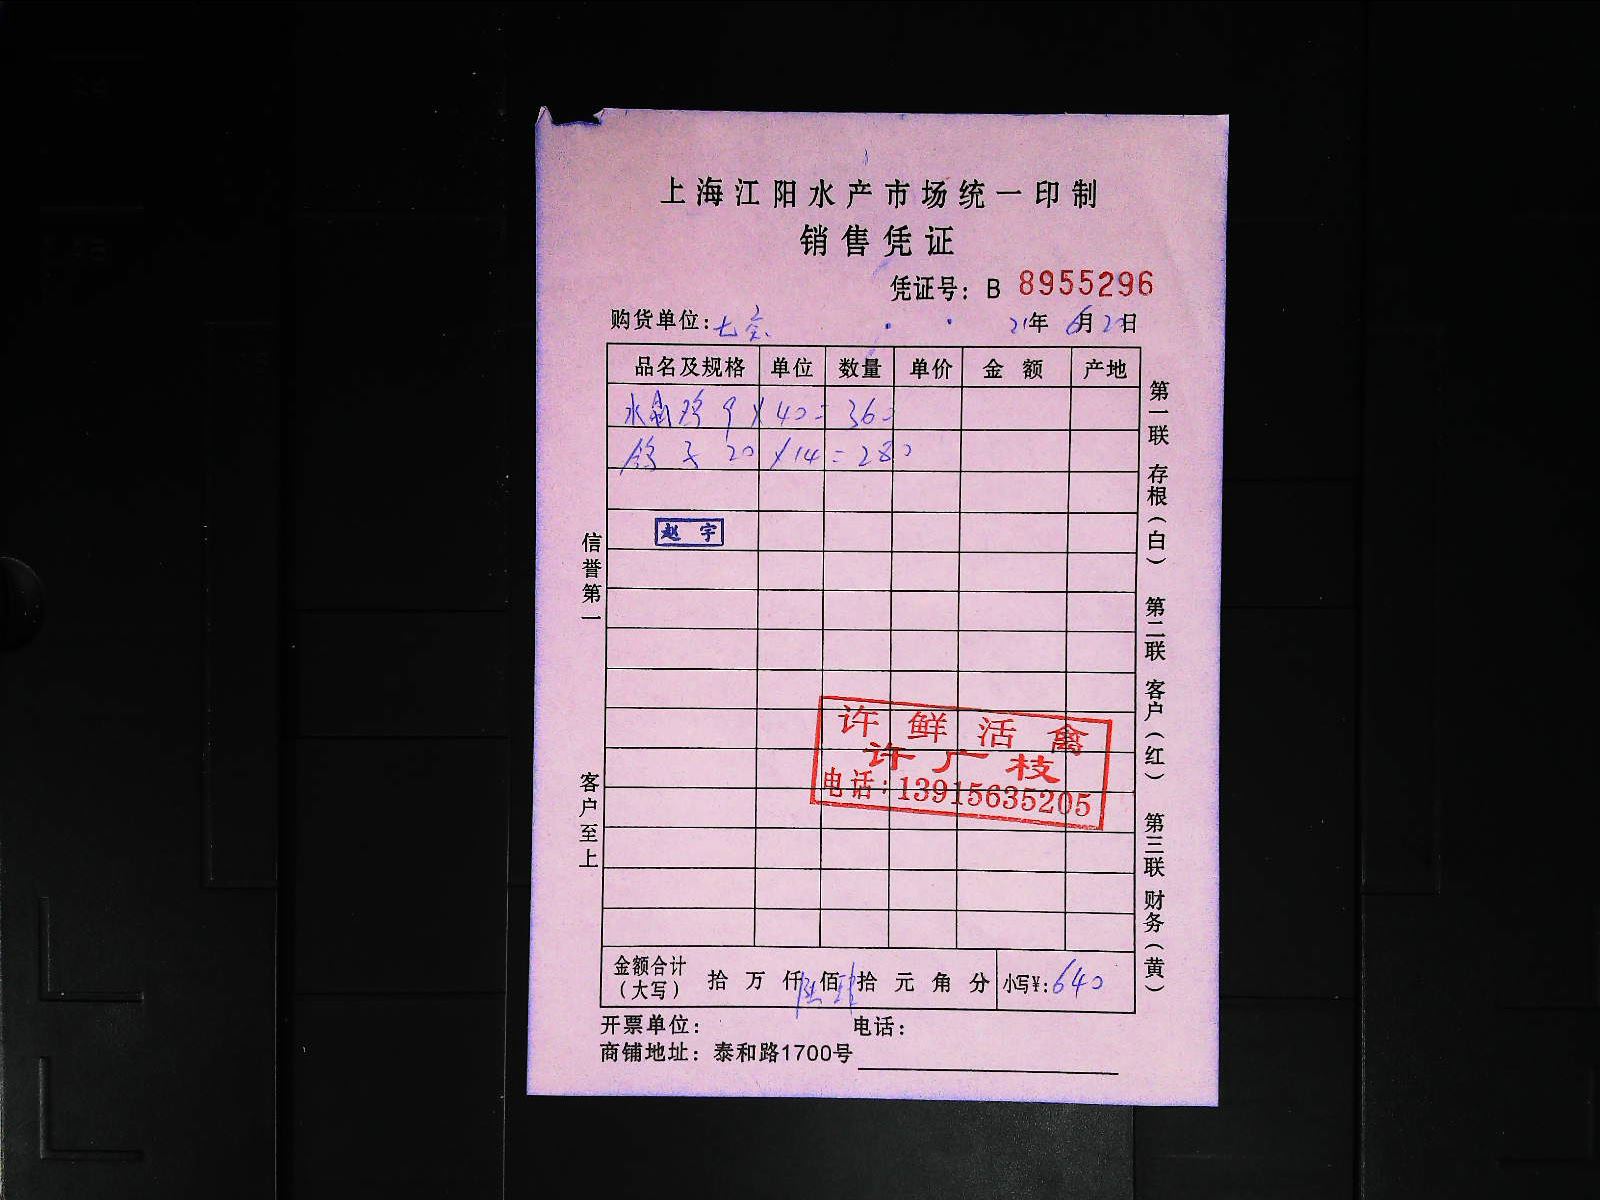 上海江阳水产市场统一印制
销售凭证
凭证号：B 8955296
购货单位：七宝 21年 6月20日
品名及规格 单位 数量 单价 金额 产地
水晶鸡 9×40=360
鸽子 20×14=280
赵宇
许鲜活禽
许广枝
电话：13915635205
金额合计（大写） 拾 万 仟 陆佰 肆拾 元 角 分 小写¥：640
开票单位： 电话：
商铺地址：泰和路1700号
信誉第一 客户至上
第一联 存根（白） 第二联 客户（红） 第三联 财务（黄）